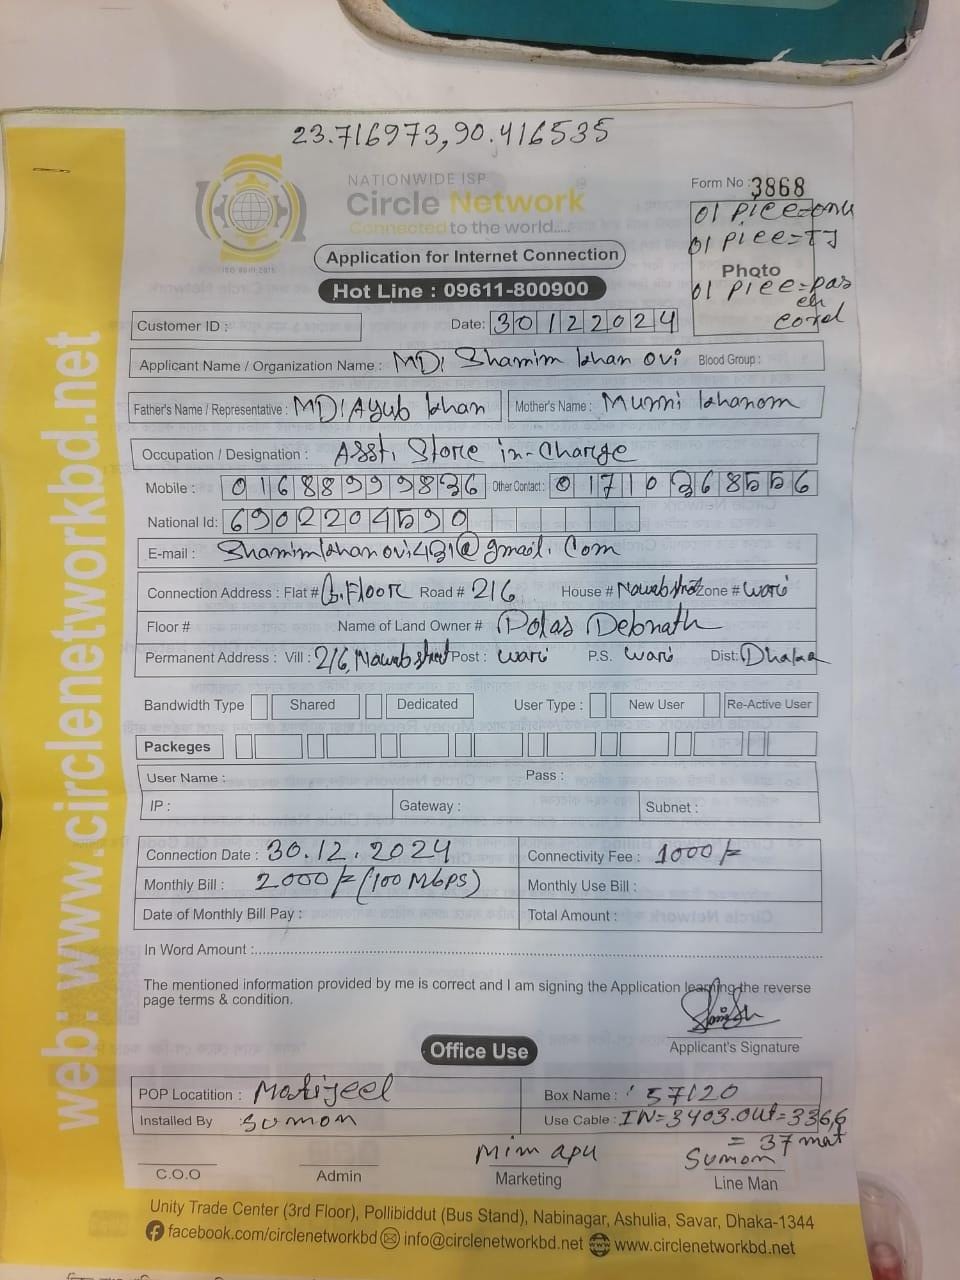 23.716973,90.416535
NATIONWIDE ISP
Circle Network
Connected to the world.....
ISO 9001:2015
Form No : 3868
01 piece=onu
01 piece=TJ
Photo
01 piece=pas
ch
cord
Application for Internet Connection
Hot Line : 09611-800900
Customer ID :
Date: 30122024
Applicant Name / Organization Name : MD! Shamim khan ovi Blood Group :
Father's Name / Representative : MD! Ayub khan Mother's Name : Munni khanom
Occupation / Designation : Asst. Store in-charge
Mobile : 01688999836 Other Contact : 01710368556
National Id: 6902204590
E-mail : Shamimkhanovi431@gmail.com
Connection Address : Flat # G.Floor Road # 2/6 House # Nawab Zone # wari
Floor # Name of Land Owner # Polas Debnath
Permanent Address : Vill : 2/6, Nawab street Post : wari P.S. wari Dist: Dhaka
Bandwidth Type Shared Dedicated User Type : New User Re-Active User
Packeges
User Name : Pass :
IP : Gateway : Subnet :
Connection Date : 30.12.2024 Connectivity Fee : 1000/=
Monthly Bill : 2000/= (100 Mbps) Monthly Use Bill :
Date of Monthly Bill Pay : Total Amount :
In Word Amount :
The mentioned information provided by me is correct and I am signing the Application learning the reverse
page terms & condition.
Applicant's Signature
Office Use
POP Locatition : Motijeel Box Name : 57120
Installed By : Sumon Use Cable : IN=3403.out=3366
= 37 mat
C.O.O Admin Mim apu Marketing Sumon Line Man
Unity Trade Center (3rd Floor), Pollibiddut (Bus Stand), Nabinagar, Ashulia, Savar, Dhaka-1344
facebook.com/circlenetworkbd info@circlenetworkbd.net www.circlenetworkbd.net
web: www.circlenetworkbd.net